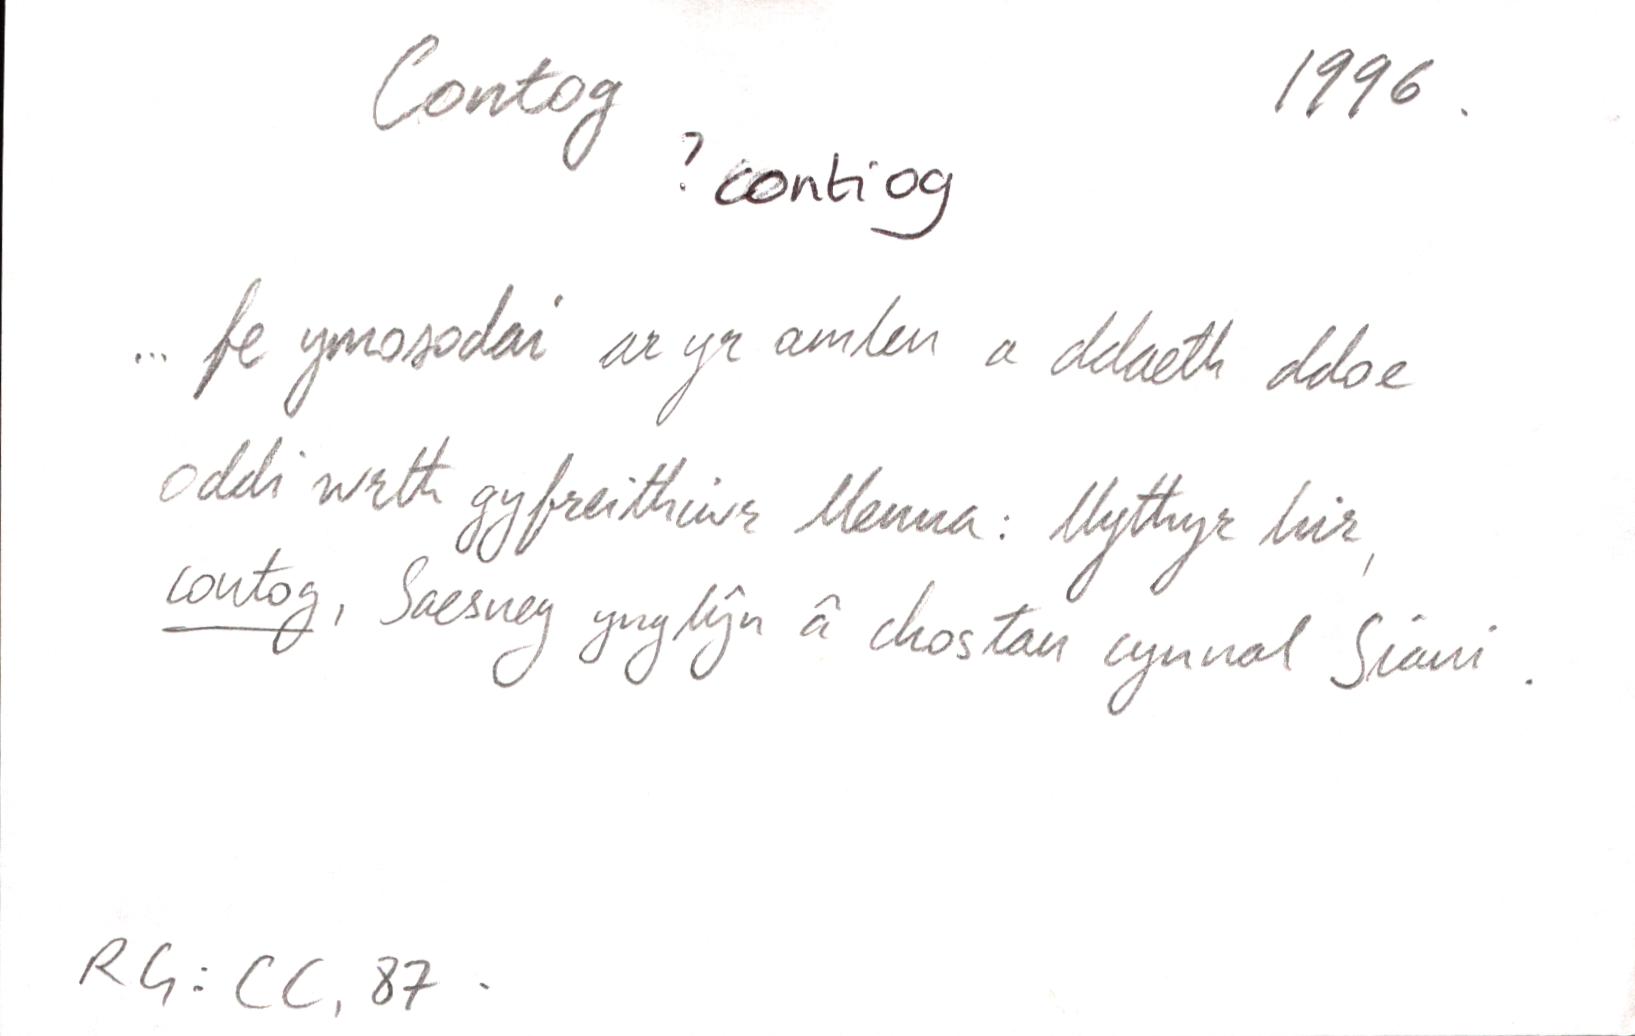 Contog 1996.
? contiog
... fe ymosodai ar yr amlen a ddaeth ddoe
oddi wrth gyfreithiwr Menna: llythyr hir,
contog, Saesneg ynglŷn â chostau cynnal Siani.
RG: CC, 87.